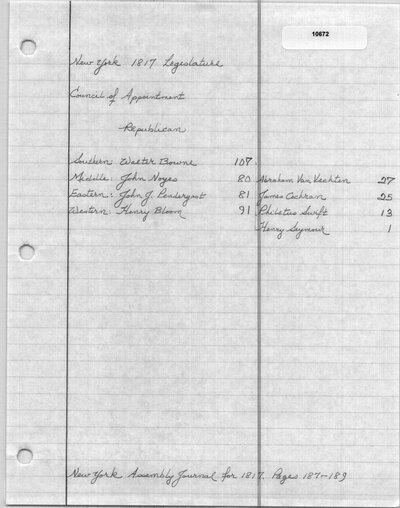 10672
New York 1817 Legislature
Council of Appointment
Republican
Southern: Walter Bowne 107.
Middle: John Noyes 80 Abraham Van Vechten 27
Eastern: John J. Pendergast 81 James Cochran 25
Western: Henry Bloom 91 Philetus Swift 13
Henry Seymour 1
New York Assembly Journal for 1817. Pages 187-189